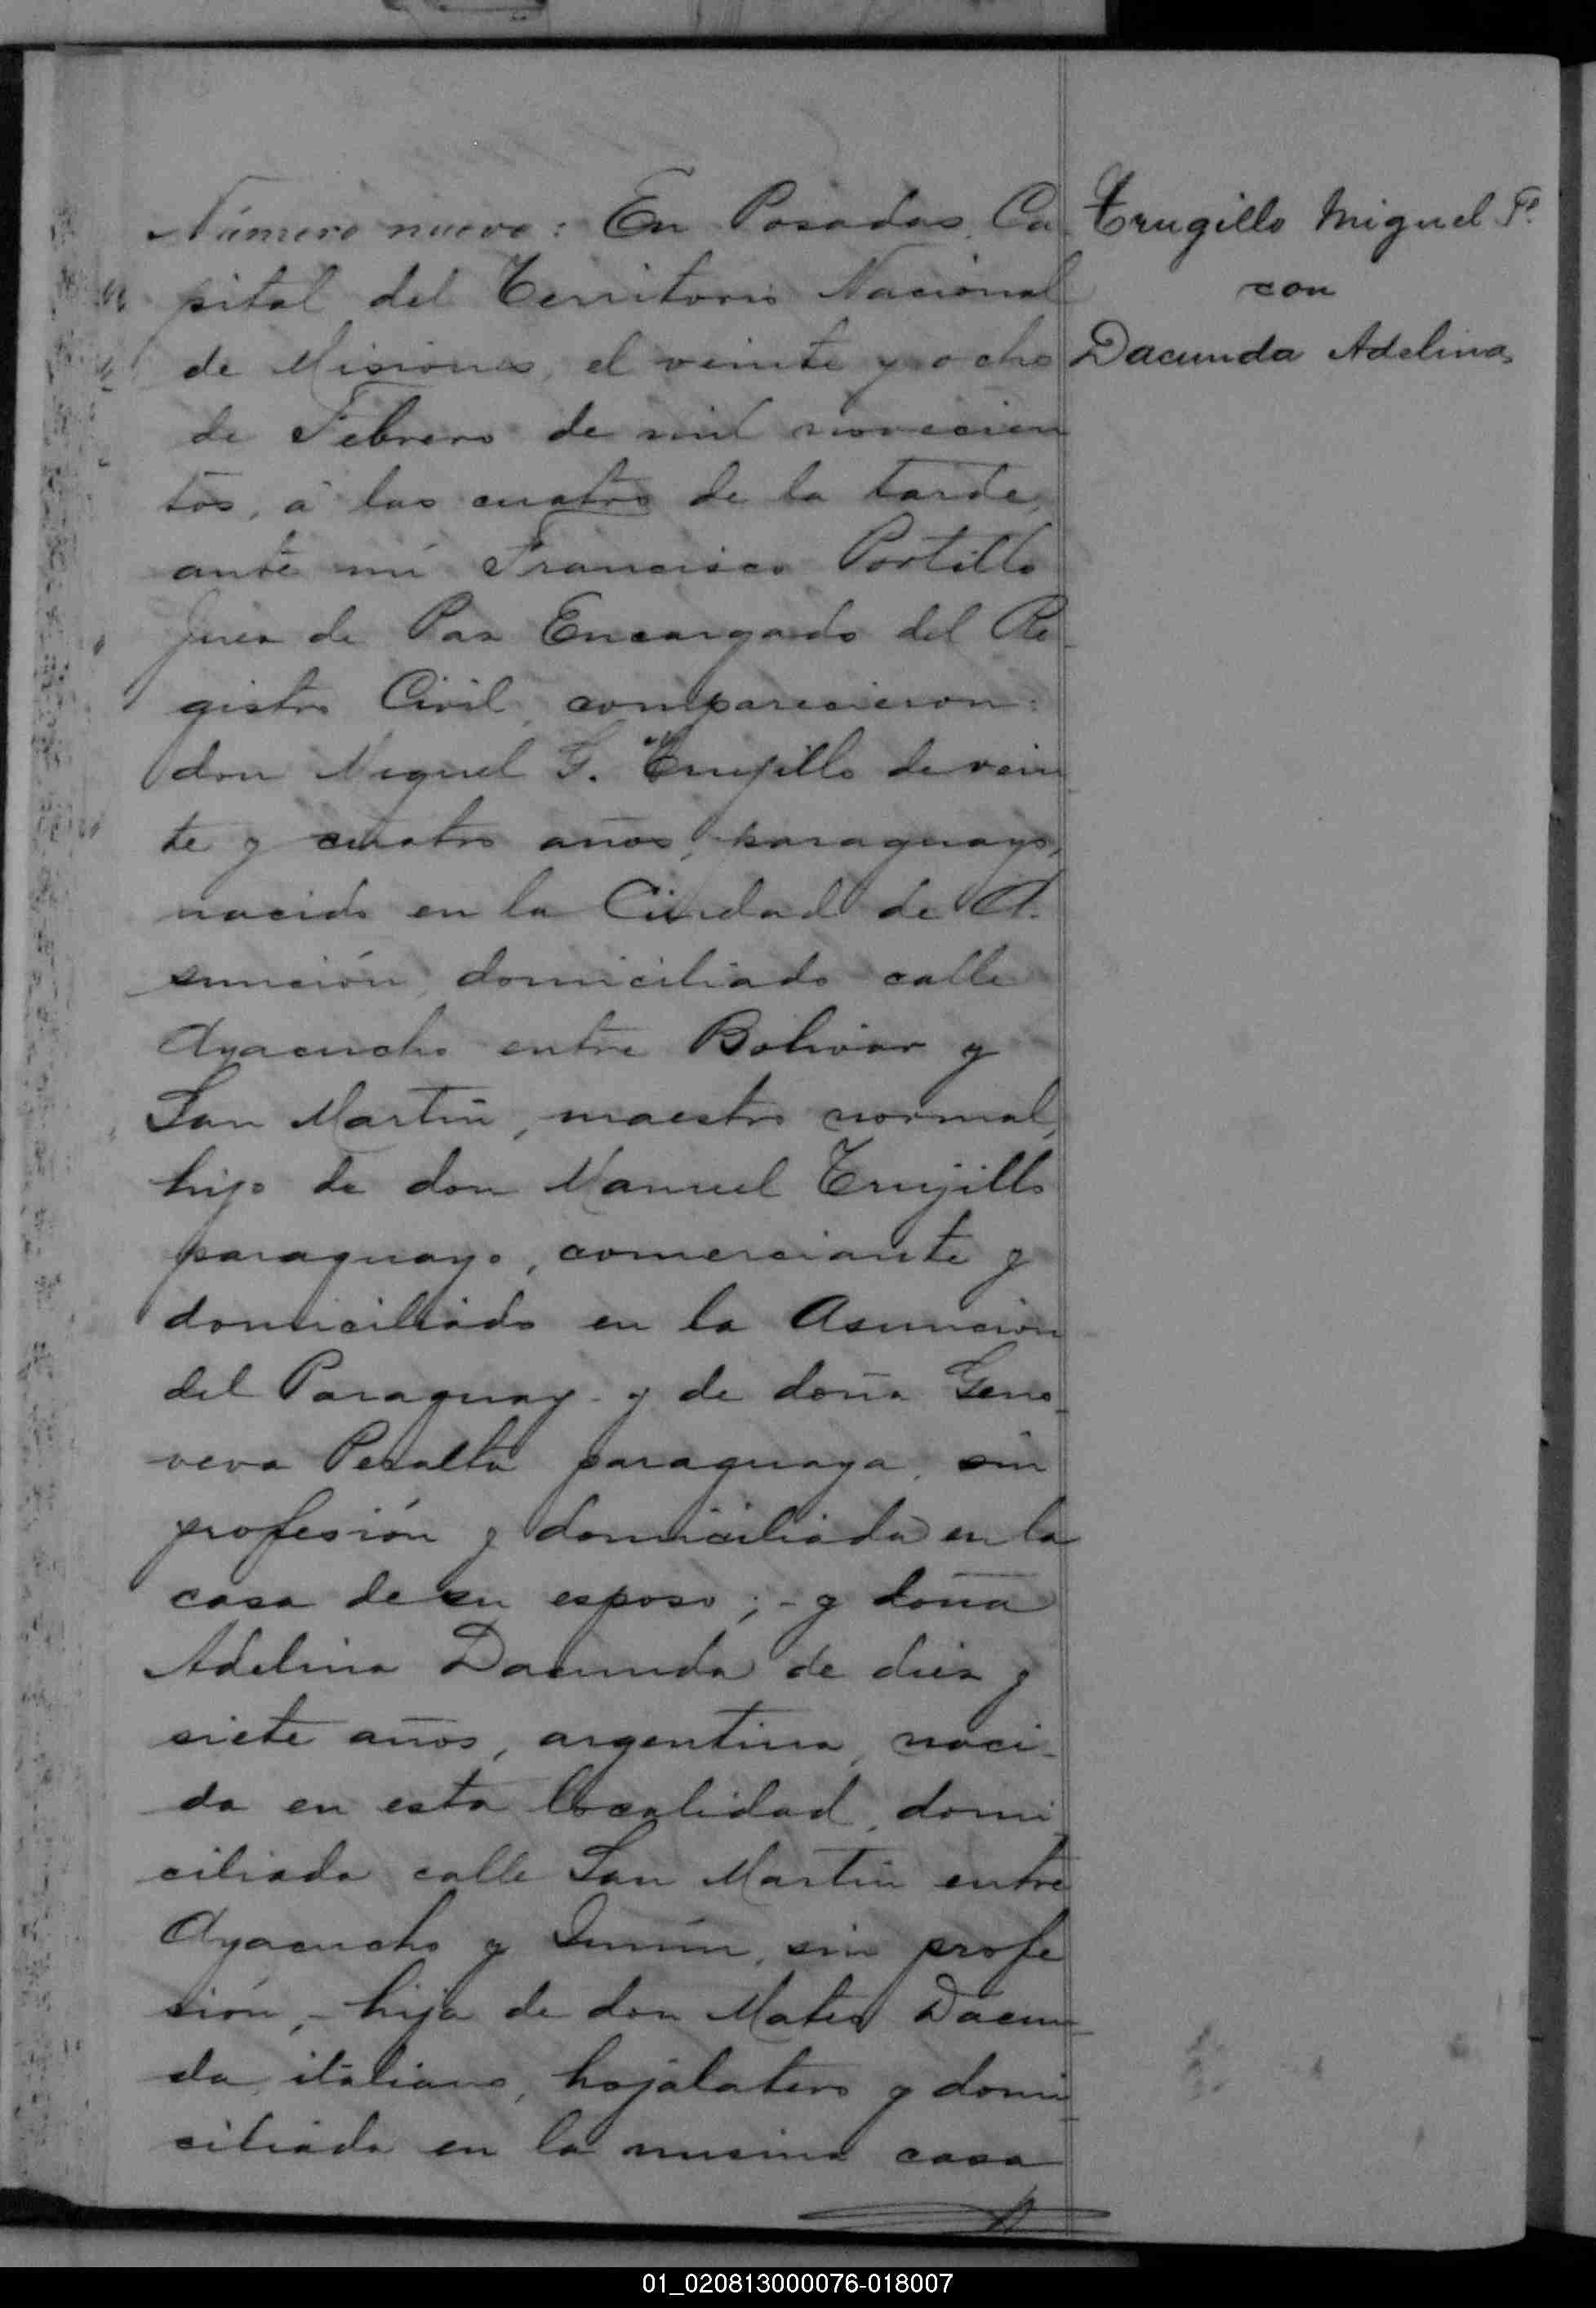 Número nueve: En Posadas, Ca
pital del Territorio Nacional
de Misiones, el veinte y ocho
de Febrero de mil novecien
tos, á las cuatro de la tarde,
ante mí Francisco Portillo
Juez de Paz Encargado del Re
gistro Civil, comparecieron:
don Miguel G. Trujillo de vein
te y cuatro años, paraguayo,
nacido en la Ciudad de A-
sunción, domiciliado calle
Ayacucho entre Bolivar y
San Martín, maestro normal,
hijo de don Manuel Trujillo
paraguayo, comerciante y
domiciliado en la Asunción
del Paraguay - y de doña Geno
veva Peralta paraguaya, sin
profesión y domiciliada en la
casa de su esposo; - y doña
Adelina Dacunda de diez y
siete años, argentina, naci-
da en esta localidad, domi
ciliada calle San Martín entre
Ayacucho y Junín, sin profe
sión, - hija de don Mateo Dacun-
da, italiano, hojalatero y domi
ciliado en la misma casa
Trugillo Miguel
con
Dacunda Adelina
01_020813000076-018007